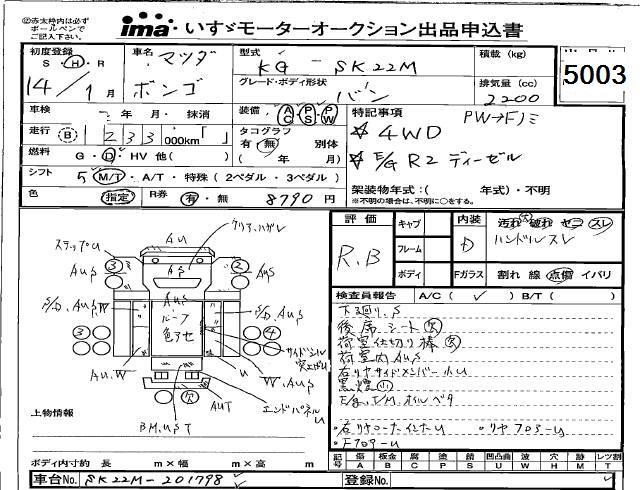 ②赤太枠内は必ず
ボールペンで
ご記入下さい。
ima いすゞモーターオークション出品申込書
初度登録
S・H・R
14/1月
車名 マツダ
ボンゴ
型式
KG-SK22M
積載(kg)
5003
グレード・ボディ形状
バン
排気量(cc)
2200
車検 年 月・抹消
装備 AC PS PW
特記事項 PW→Fノミ
☆4WD
走行 B 1233 000km「 」
タコグラフ
有・無 別体
( 年 月)
☆E/G R2 ディーゼル
燃料 G・D・HV 他( )
シフト 5 M/T・A/T・特殊(2ペダル・3ペダル)
架装物年式:( 年式)・不明
※不明の場合は、不明に○をする。
色 指定 R券 有・無 8790円
評価 キャブ 内装 汚れ 破れ セコ スレ
R.B フレーム D ハンドルスレ
ボディ Fガラス 割れ 線 点傷 イバリ
検査員報告 A/C( ✓ ) B/T( )
下廻り.S
後席シート欠
荷室仕切り棒欠
荷室内AUS
右リヤサイドメンバー小U
黒煙小
E/g.T/M.オイルベタ
・右リヤコーナーインナーU ・リヤフロアーU
・Fフロアーu
ステップu
AU
クリアハガレ
3
AS
2
AUS
AUS
AUS
ルーフ
色アセ
S/D.AUS.W
S/D.AUS
3
4
サイドシル
突上げU
AU.W
W.AUS
U
欠
AUT
エンドパネルU
BM.UST
上物情報
ボディ内寸約 長 m×幅 m×高 m
記号 傷 板金 腐 塗 錆 凹 凸凹曲 波 穴 跡 レツ割
A B C P S U W H M T
車台No. SK22M-201798
登録No.